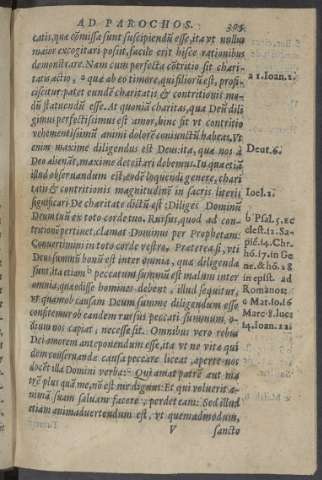 AD PAROCHOS. 305
tatis, quæ cōmissa sunt suscipiendū esse, ita vt nullus
maior excogitari possit, facile erit hisce rationibus
demonstrare. Nam cum perfecta cōtritio sit chari-
tatis actio, a quæ ab eo timore, qui filiorū est, profi-
ciscitur: patet eundē charitatis & contritionis mo-
dū statuendū esse. At quoniā charitas, qua Deū dili
gimus perfectissimus est amor, hinc fit vt contritio
vehementissimū animi dolorē coniunctū habeat. Vt
enim maxime diligendus est Deus: ita, quæ nos à
Deo alienāt, maxime detestari debemus. In qua etiā
illud obseruandum est, eodē loquendi genere, chari
tatis & contritionis magnitudinē in sacris literis
significari. De charitate dictū est: Diliges Dominū
Deum tuū ex toto corde tuo. Rursus, quod ad con-
tritionē pertinet, clamat Dominus per Prophetam:
Conuertimini in toto corde vestro. Præterea si, vti
Deus summū bonū est inter omnia, quæ diligenda
sunt, ita etiam b peccatum summū est malum inter
omnia, quæ odisse homines debent, illud sequitur,
vt quam ob causam Deum summe diligendum esse
confitemur ob eandem rursus peccati summum, o-
dium nos capiat, necesse sit. Omnibus vero rebus
Dei amorem anteponendum esse, ita vt ne vitæ qui
dem conseruandæ causa peccare liceat, aperte nos
docēt illa Domini verba: c Qui amat patrē aut ma
trē plus quā me, nō est me dignus: Et qui voluerit a-
nimā suam saluam facere, perdet eam: Sed illud
etiam animaduertendum est, vt quemadmodum,
V sancto
a 1. Ioan. 2.
Deut. 6.
Ioel. 2.
b Psal. 5. ec
clest. 12. Sa-
pic. 14. Chr.
hō. 17. in Ge
ne. & hō. 28
in epist. ad
Romanos:
c Mat. 10. 16
Marc. 8. luca
14. Ioan. 12.